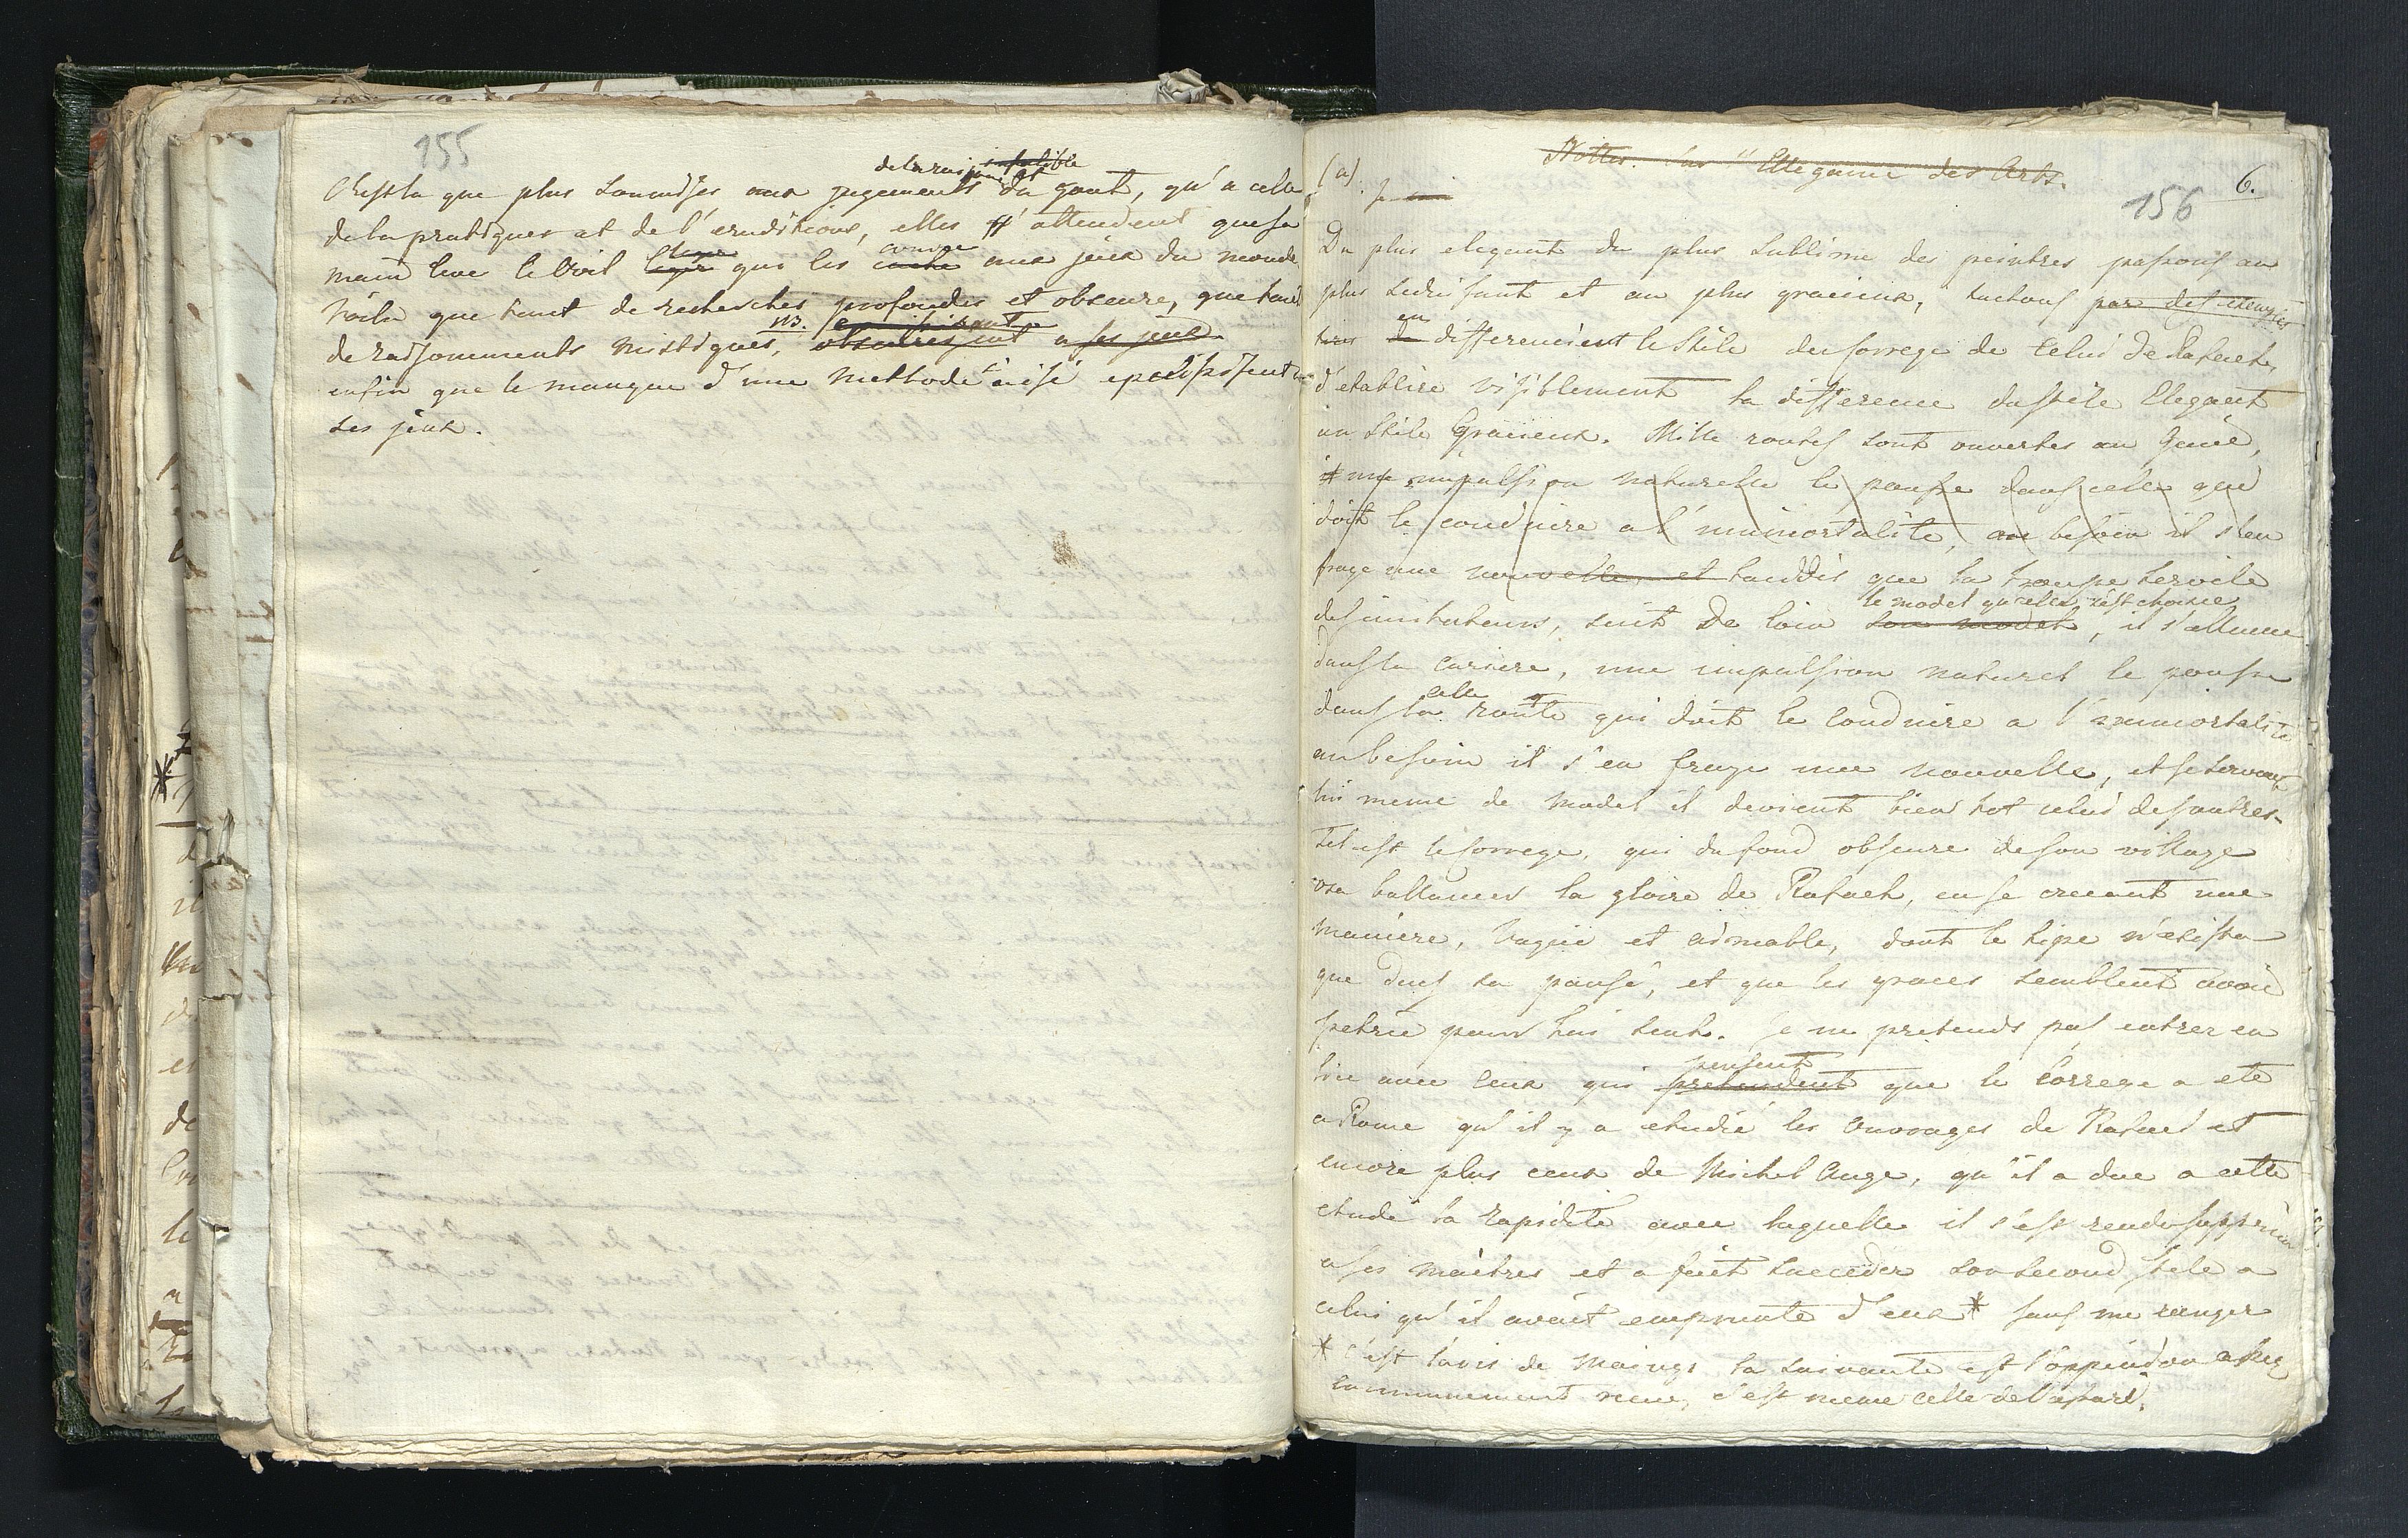 155
de la raison et infalible
C'est la que plus soumises aux jugements du gout, qu'a celu
de la pratiques et de l'erudition, elles n'attendent que sa
main leve le voil leger qui les couvre cache aux jeux du monde
voila que tant de recherches profondes et obscure, que tant
de raisonnements mistiques, obscurcissent a ses jeux
enfin que le manque d'une methode aisé epaissisent a
ses jeux.
Nottes. sur l'Ellegance des Arts.
(a)
6.
156
Du plus elegant du plus sublime des peintres passons au
plus seduisant et au plus gracieux, tachons par des exemples
en differenciant le stile du Correge de celui de Rafaeh,
d'etablire visiblement la difference du stile Elegant
au stile Gracieux. Mille routes sont ouvertes au Genie,
une impulsion naturelle le pousse dans celle qui
doit le conduire a l'immortalite, au besoin il s'en
fraye une nouvelle, et tandis que la troupe servile
des imitateurs, suit de loin son model le model qu'elle s'est choisie, il s'allume
dans la cariere, une impulsion naturel le pousse
dans la celle route qui doit le conduire a l'immortalité
au besoin il s'en fraye une nouvelle, et se servant
lui meme de model il devient bien tot celui des autres.
Tel est le Correge, qui du fond obscure de son village
osa ballancer la gloire de Rafaeh, en se creeant une
maniere, vague et aimable, dont le tipe n'exista
que dans sa pensé, et que les graces semblent avoir
petrie pour lui seul. Je ne pretends pas entrer en
lice avec ceux qui pretendent pensent que le Correge a ete
a Rome qu'il y a etudié les ouvrages de Rafael et
encore plus ceux de Michel Ange, qu'il a due a cette
etude la rapidité avec laquelle il s'est rendu supperieur
a ses maitres et a fait succeder son second stile a
celui qu'il avait emprunté d'eux * sans me ranger
* c'est l'avis de Maings la suivante est l'oppinion assez
communement reçue, c'est meme celle de Vasari.